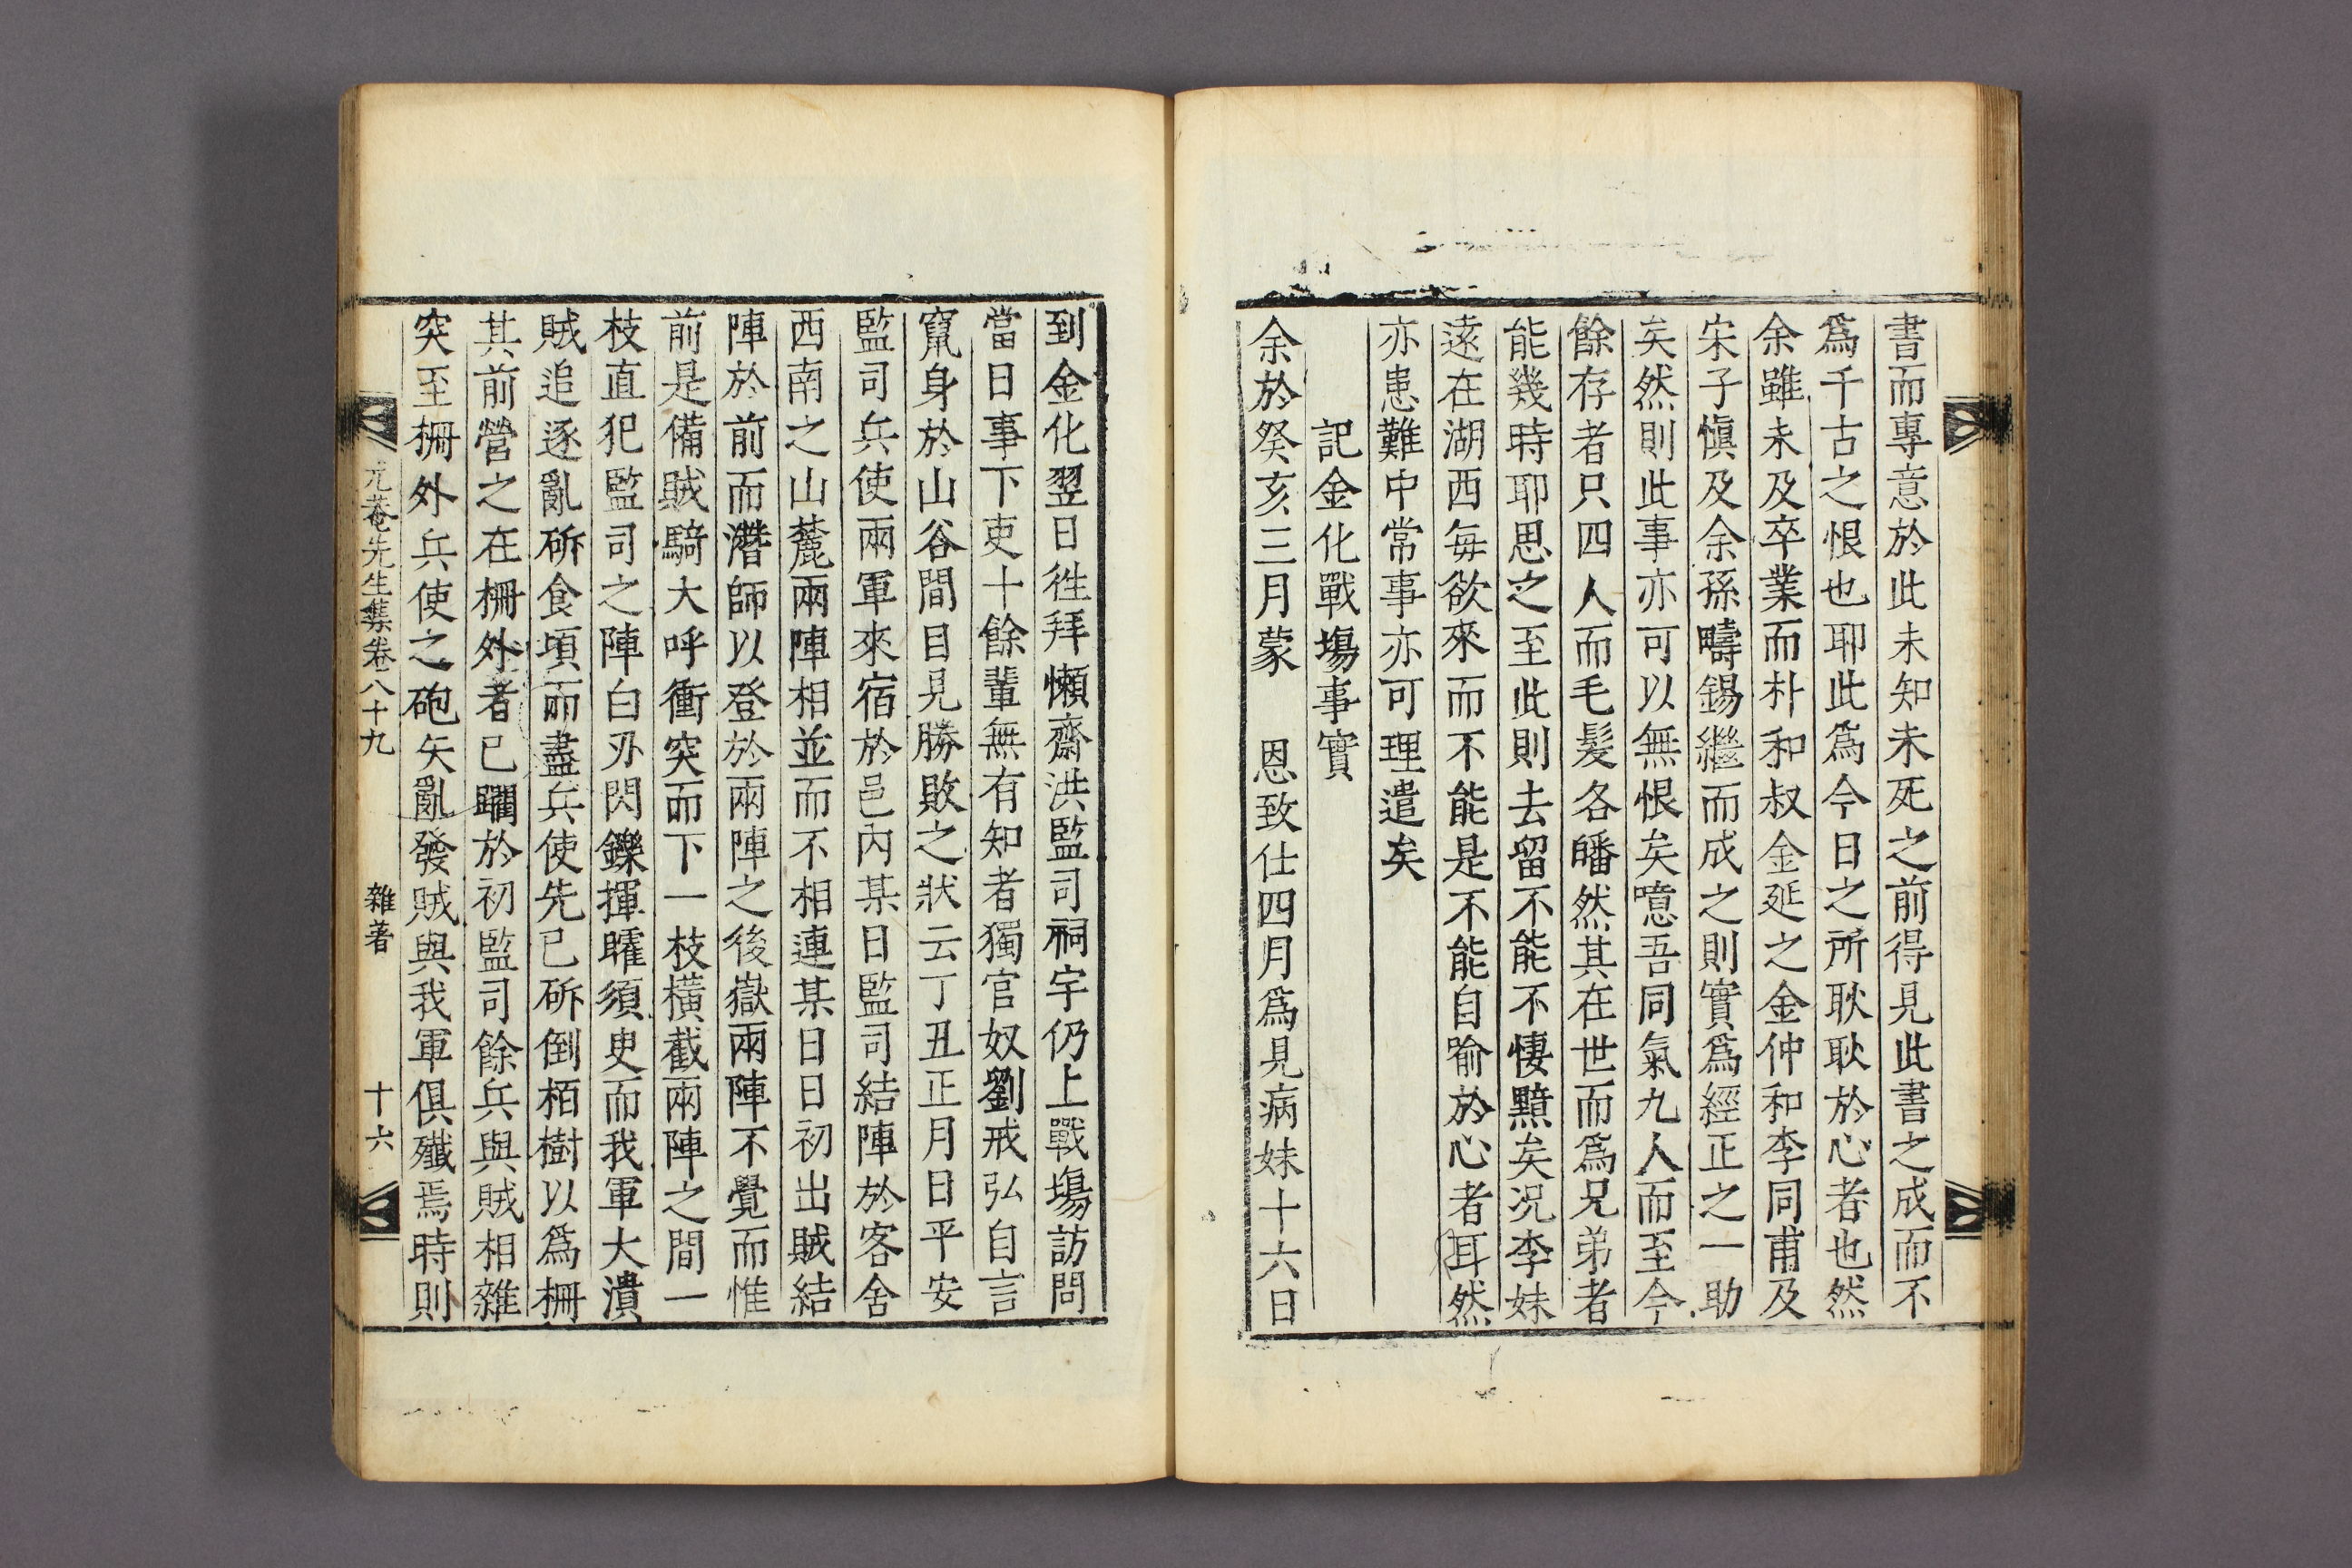 書而專意於此未知未死之前得見此書之成而不
爲千古之恨也耶此爲今日之所耿耿於心者也然
余雖未及卒業而朴和叔金延之金仲和李同甫及
宋子愼及余孫疇錫繼而成之則實爲經正之一助
矣然則此事亦可以無恨矣噫吾同氣九人而至今
餘存者只四人而毛髮各皤然其在世而爲兄弟者
能幾時耶思之至此則去留不能不悽黯矣况李妹
遠在湖西每欲來而不能是不能自喻於心者耳然
亦患難中常事亦可理遣矣
記金化戰塲事實
余於癸亥三月蒙 恩致仕四月爲見病妹十六日
到金化翌日徃拜懶齋洪監司祠宇仍上戰塲訪問
當日事下吏十餘輩無有知者獨官奴劉戒弘自言
竄身於山谷間目見勝敗之狀云丁丑正月日平安
監司兵使兩軍來宿於邑內某日監司結陣於客舍
西南之山麓兩陣相並而不相連某日日初出賊結
陣於前而潛師以登於兩陣之後嶽兩陣不覺而惟
前是備賊騎大呼衝突而下一枝橫截兩陣之間一
枝直犯監司之陣白刃閃鑠揮曤須臾而我軍大潰
賊追逐亂斫食頃而盡兵使先已斫倒栢樹以爲柵
其前營之在柵外者已躙於初監司餘兵與賊相雜
突至柵外兵使之砲矢亂發賊與我軍俱殲焉時則
尤菴先生集卷八十九 雜著 十六